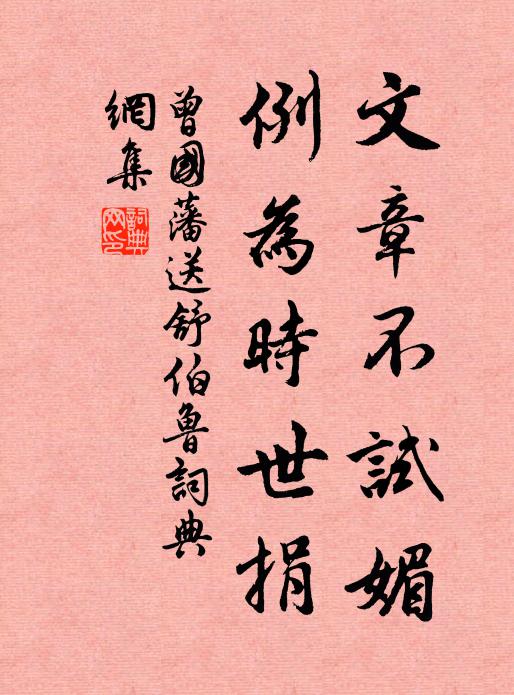 文章不試媚
例為時世捐
曾國藩送舒伯魯詞典
網集
詞典
网印